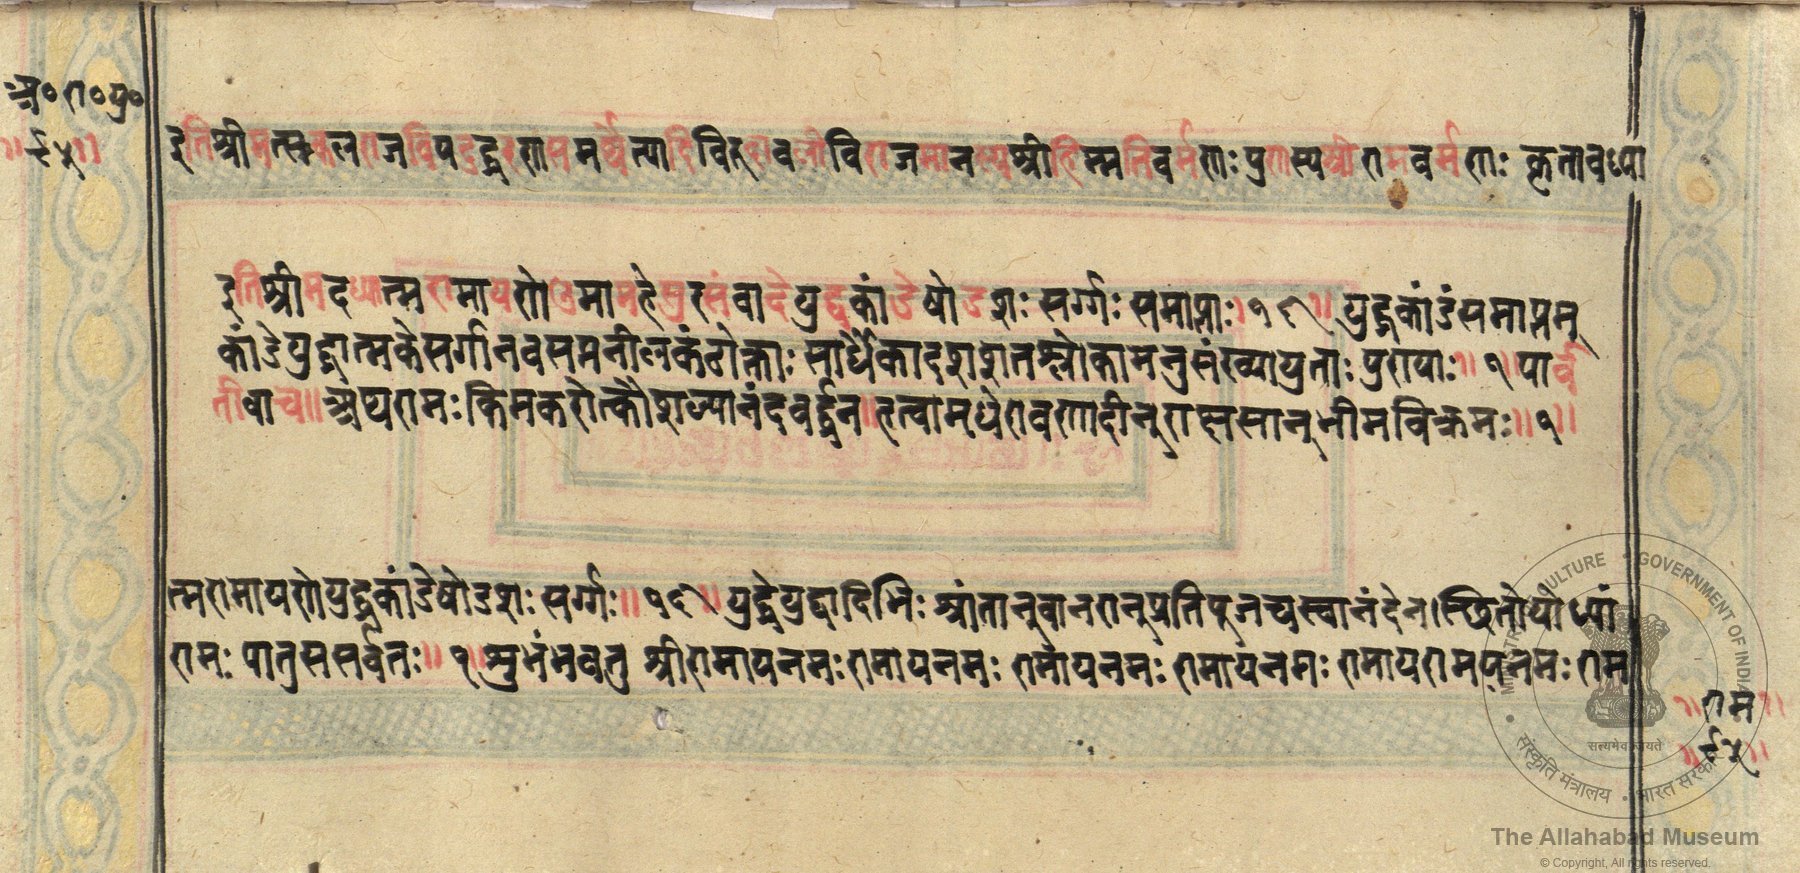 अ॰ रा॰ यु॰
॥९५॥
इतिश्रीमत्सकलराजविपदुद्धरणसमर्थेत्यादिविरुदावलीविराजमानस्यश्रीहिम्मतिवर्मणः पुत्रस्यश्रीरामवर्मणः कृतावध्या
इतिश्रीमदध्यात्मरामायणेउमामहेश्वरसंवादेयुद्धकांडेषोडशः सर्ग्गः समाप्तः। १६॥ युद्धकांडंसमाप्तम्
कांडेयुद्धात्मकेसर्गानवसप्तनीलकंठोक्ताः सार्धैकादशशतश्लोकामनुसंख्यायुताः पुरायाः॥ १॥ पार्व
तीवाच॥ अथरामः किमकरोत्कौशल्यानंदवर्द्धन॥ हत्वामृधेरावणादीनुराक्षसानुभीमविक्रमः॥ १॥
त्मरामायणेयुद्धकांडेषोडशः सर्ग्गः॥ १६॥ युद्धेयुद्धादिभिः श्रांतानुवानरानुप्रतिपूज्यचस्वानंदेन। स्थितोयोध्यां
रामः पातुससर्वतः॥ १॥ शुभंभवतु श्रीरामायनमः रामायनमः रामायनमः रामायनमः रामायरामायनमः राम
॥राम॥
॥९५॥
MINISTRY OF CULTURE • GOVERNMENT OF INDIA
सत्यमेव जयते
संस्कृति मंत्रालय • भारत सरकार
The Allahabad Museum
© Copyright, All rights reserved.